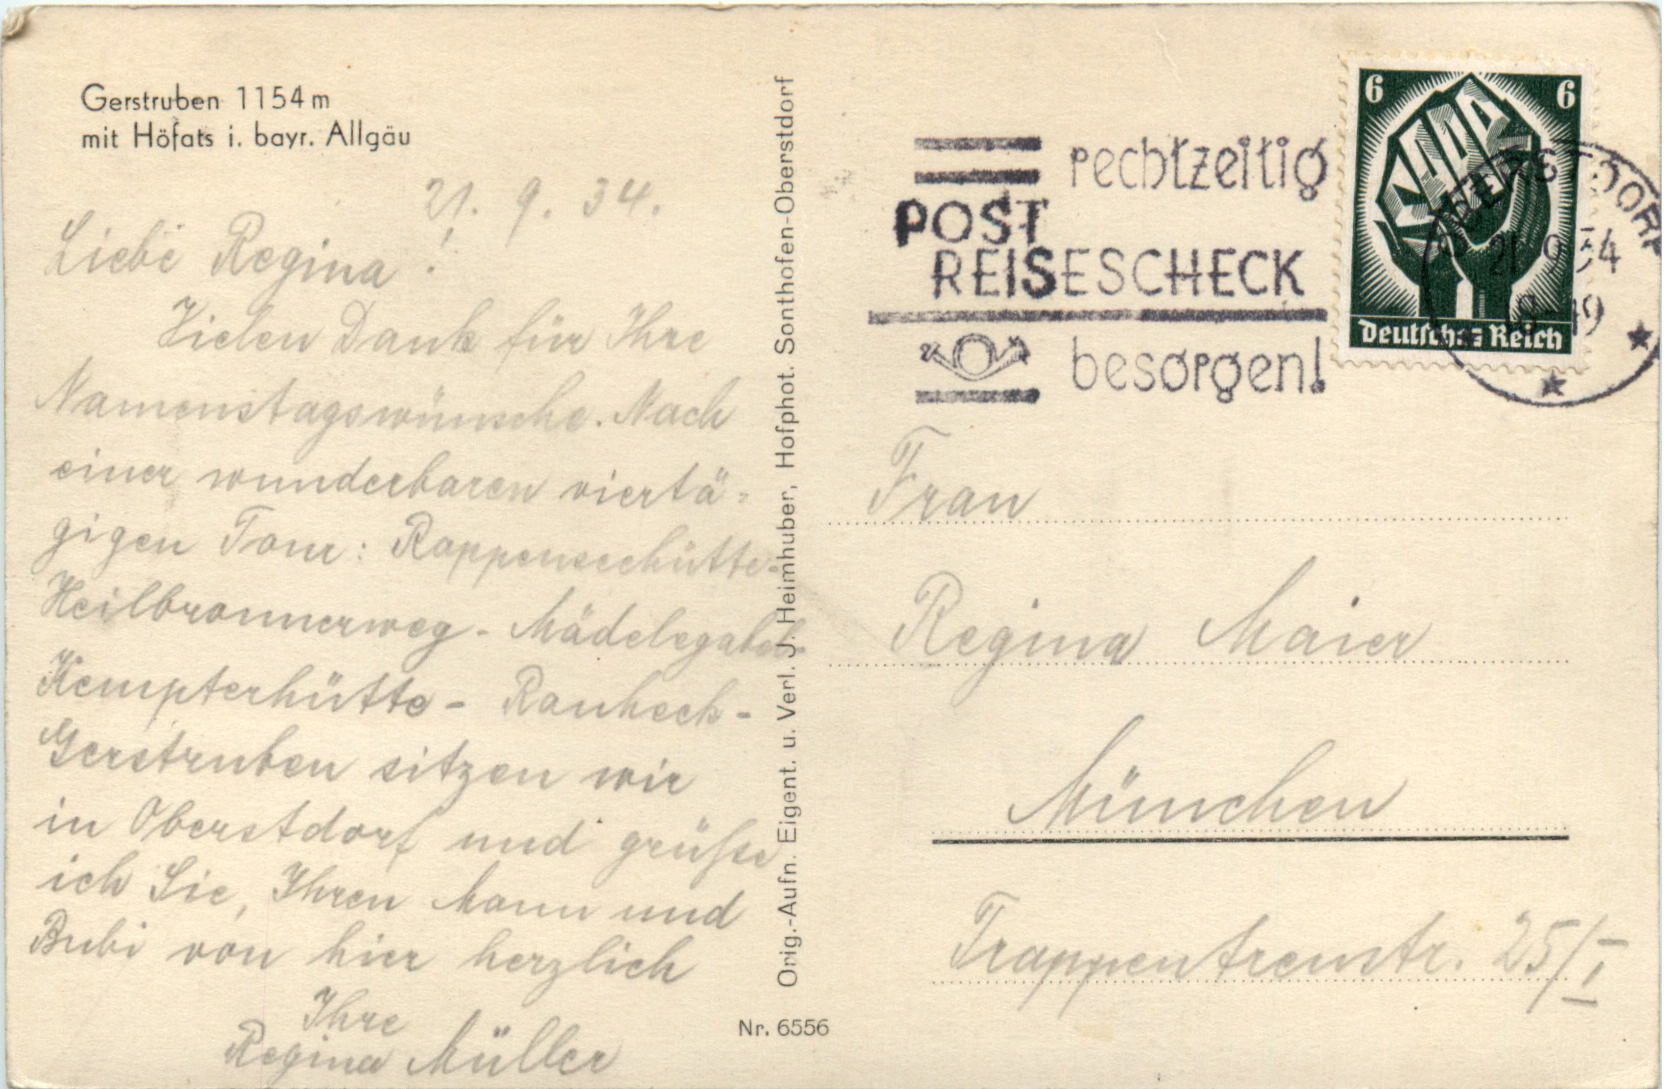 Gerstruben 1154 m
mit Höfats i. bayr. Allgäu
21. 9. 34.
Liebe Regina!
Vielen Dank für Ihre
Namenstagswünsche. Nach
einer wunderbaren viertä-
gigen Tour: Rappenseehütte-
Heilbronnerweg - Mädelegabel-
Kempterhütte - Rauheck -
Gerstruben sitzen wir
in Oberstdorf und grüße
ich Sie, Ihren Mann und
Bubi von hier herzlich
Ihre
Regina Müller
Orig.-Aufn. Eigent. u. Verl. J. Heimhuber, Hofphot. Sonthofen-Oberstdorf
Nr. 6556
rechtzeitig
POST
REISESCHECK
besorgen!
6 6
SAAR
Deutsches Reich
OBERSTDORF
21.9.34
18-19
Frau
Regina Maier
München
Trappentreustr. 25/I